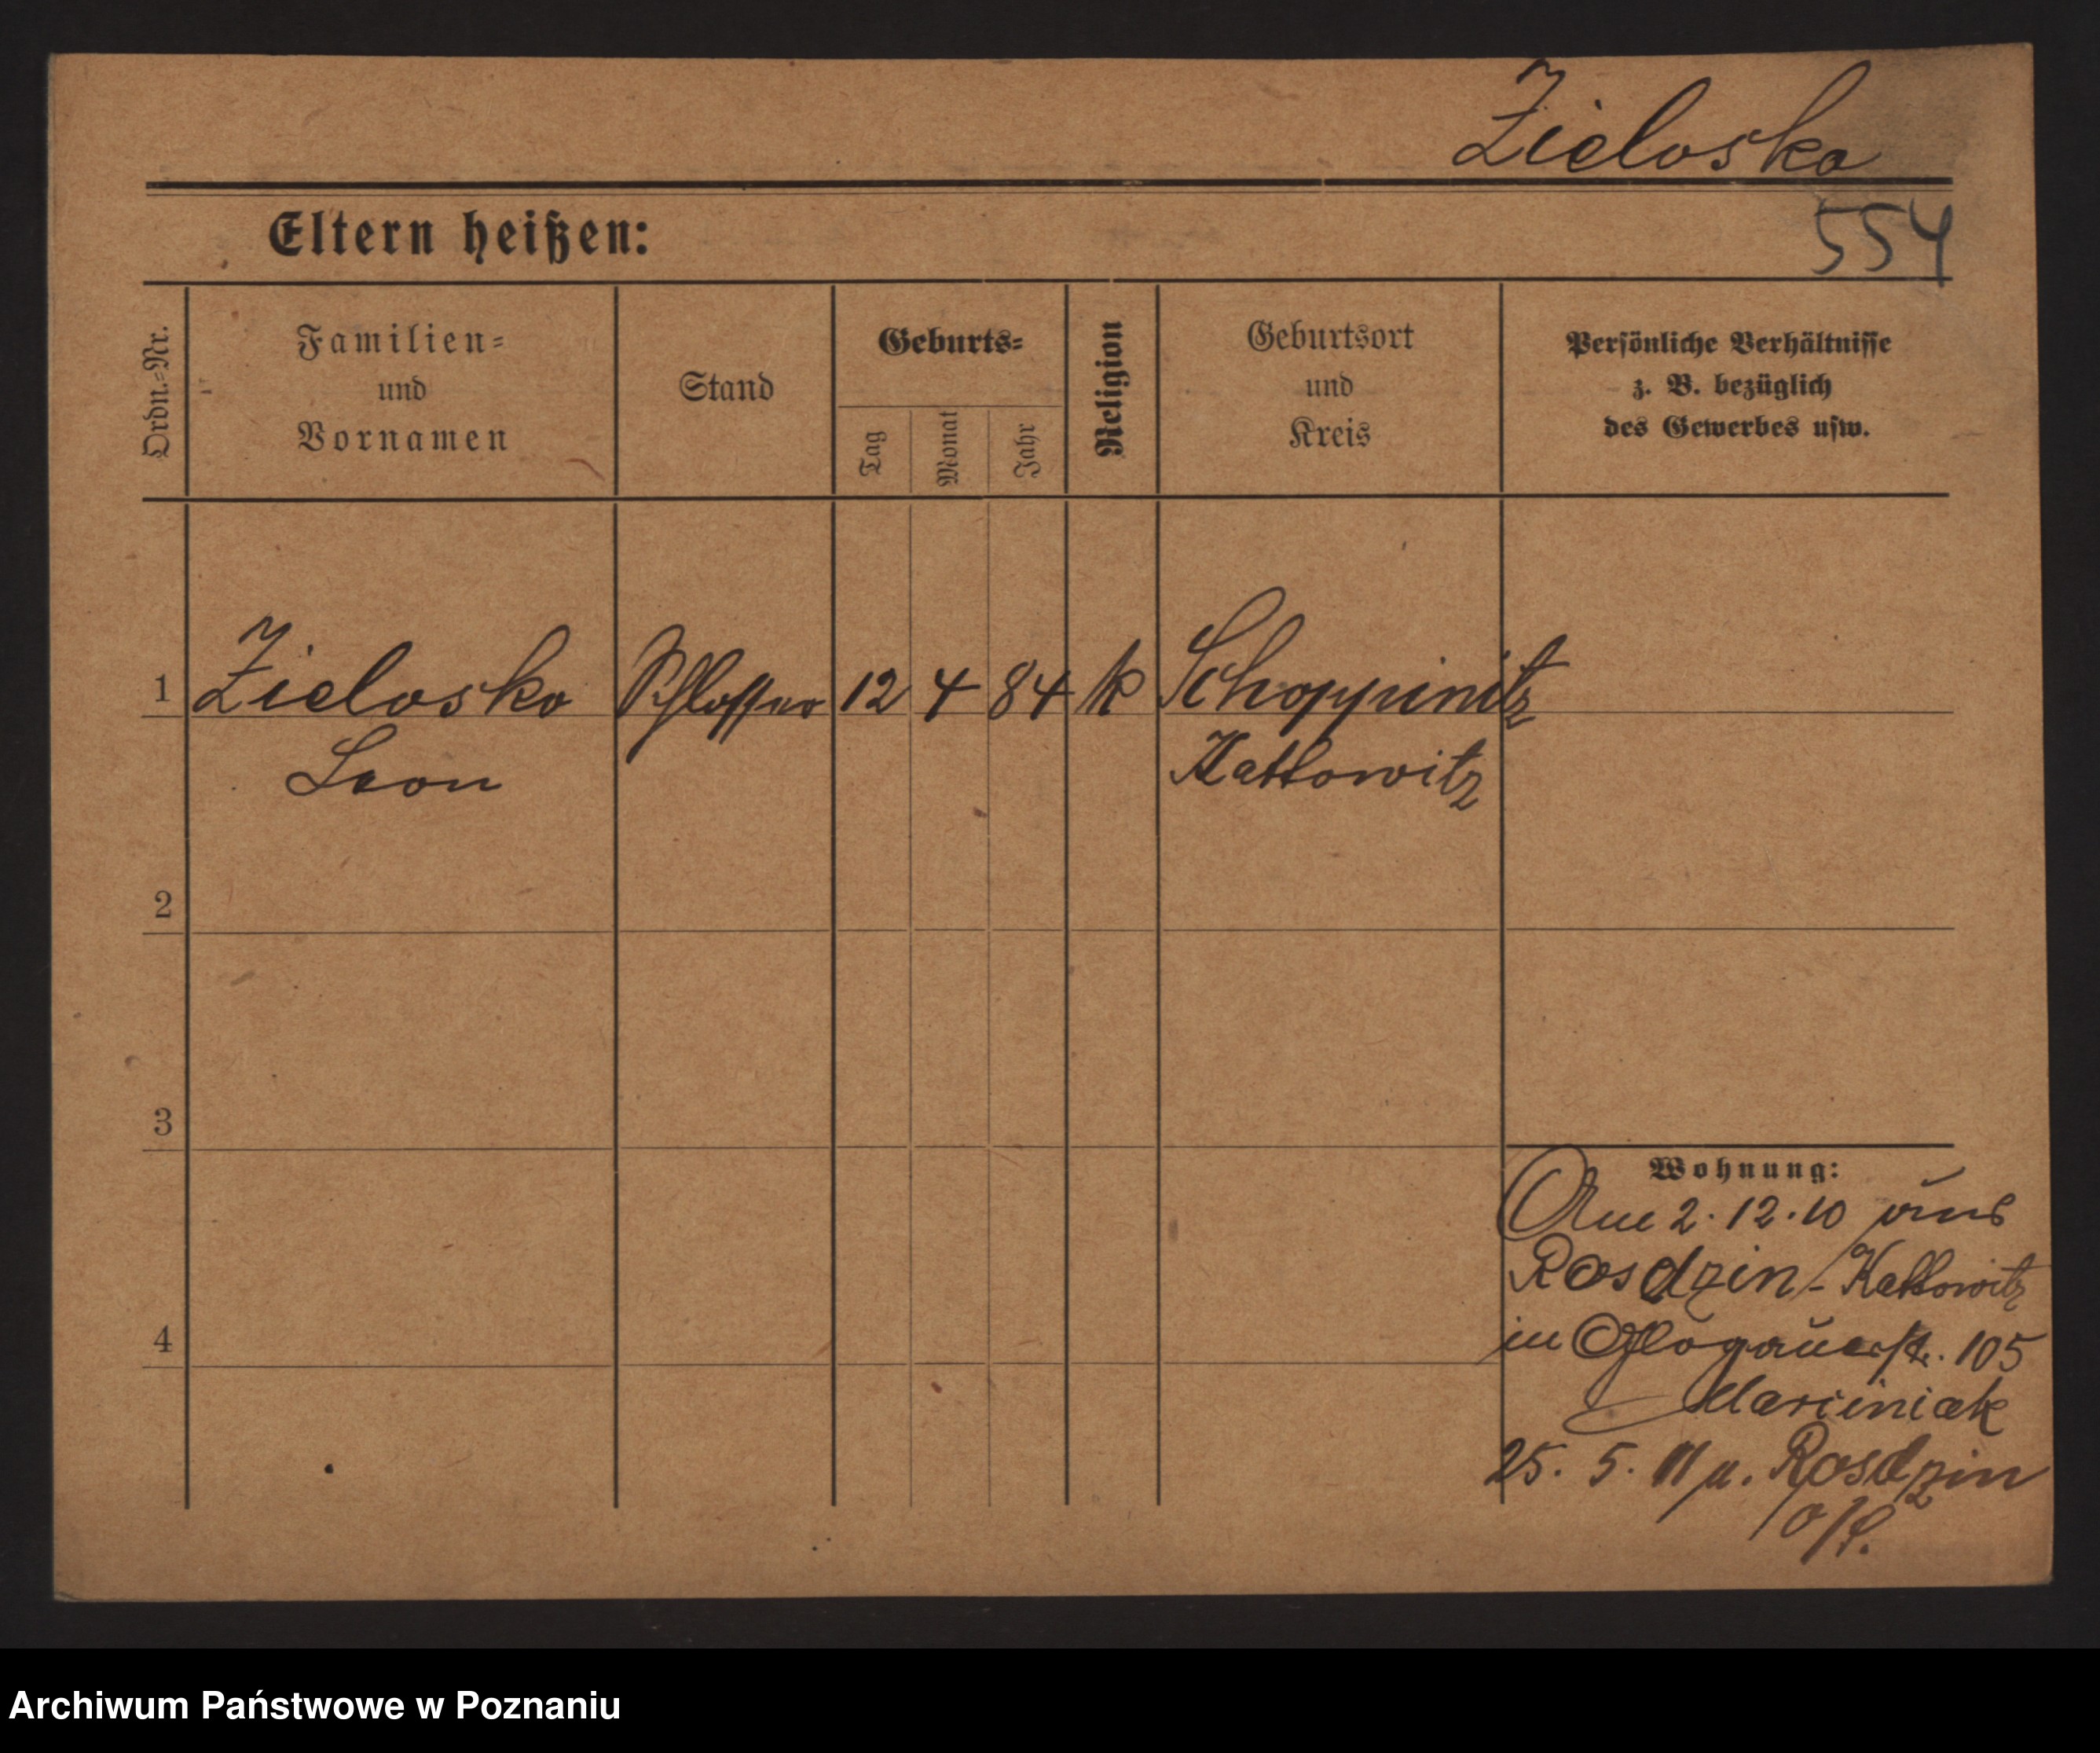 Zielosko
Eltern heißen:
554
Ordn.=Nr.
Familien=
und
Vornamen
Stand
Geburts=
Tag
Monat
Jahr
Religion
Geburtsort
und
Kreis
Persönliche Verhältnisse
z. B. bezüglich
des Gewerbes usw.
1 Zielosko Schlosser 12 4 84 k Schoppinitz
Leon Kattowitz
2
3
4
Wohnung:
Am 2.12.10 aus
Rosdzin - Kattowitz
in Glogauerstr. 105
Marciniak
25. 5. 11 n. Rosdzin
o/S.
Archiwum Państwowe w Poznaniu